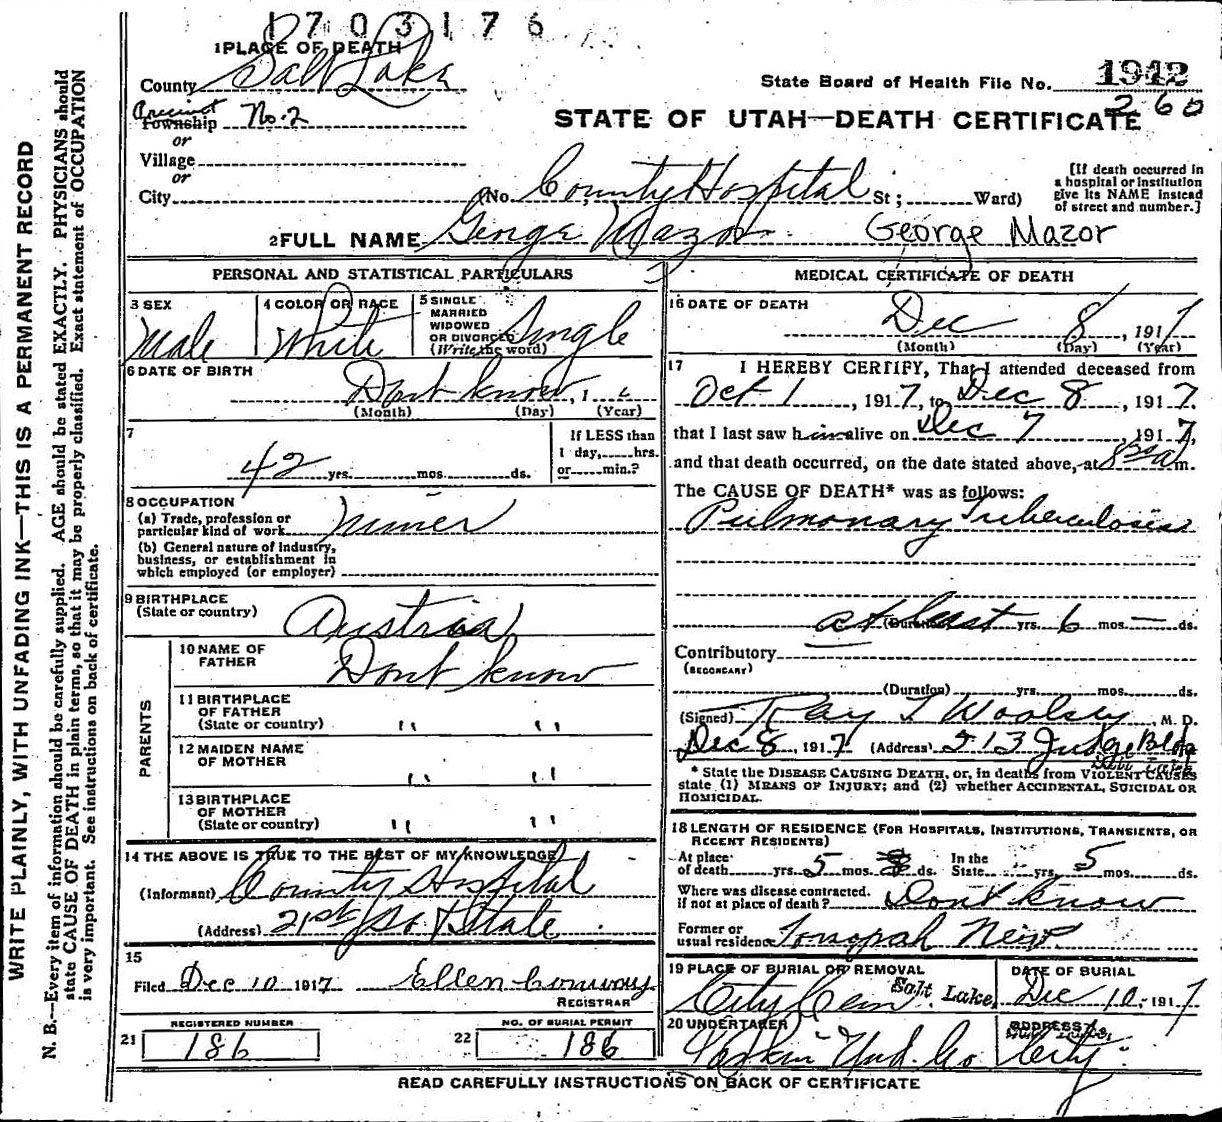 1703176
1 PLACE OF DEATH
County Salt Lake
State Board of Health File No. 1942
260
Precinct
Township No. 2
or
STATE OF UTAH—DEATH CERTIFICATE
Village
or
City (No. County Hospital St; Ward)
[If death occurred in
a hospital or institution
give its NAME instead
of street and number.]
2 FULL NAME George Mazor George Mazor
PERSONAL AND STATISTICAL PARTICULARS
3 SEX
Male
4 COLOR OR RACE
White
5 SINGLE
MARRIED
WIDOWED
OR DIVORCED
(Write the word)
Single
6 DATE OF BIRTH
Dont know, 1
(Month) (Day) (Year)
7
42 yrs. mos. ds.
If LESS than
1 day, hrs.
or min.?
8 OCCUPATION
(a) Trade, profession or
particular kind of work Miner
(b) General nature of industry,
business, or establishment in
which employed (or employer)
9 BIRTHPLACE
(State or country) Austria
PARENTS
10 NAME OF
FATHER Dont know
11 BIRTHPLACE
OF FATHER
(State or country) " "
12 MAIDEN NAME
OF MOTHER " "
13 BIRTHPLACE
OF MOTHER
(State or country) " "
14 THE ABOVE IS TRUE TO THE BEST OF MY KNOWLEDGE
(Informant) County Hospital
(Address) 21st So & State
15
Filed Dec 10 1917 Ellen Conway
REGISTRAR
REGISTERED NUMBER
21 186
NO. OF BURIAL PERMIT
22 186
MEDICAL CERTIFICATE OF DEATH
16 DATE OF DEATH
Dec 8, 1917
(Month) (Day) (Year)
17 I HEREBY CERTIFY, That I attended deceased from
Oct 1, 1917, to Dec 8, 1917.
that I last saw him alive on Dec 7, 1917,
and that death occurred, on the date stated above, at 8 30 a m.
The CAUSE OF DEATH* was as follows:
Pulmonary Tuberculosis
at least (Duration) yrs. 6 mos. — ds.
Contributory
(SECONDARY)
(Duration) yrs. mos. ds.
(Signed) Ray T Woolsey, M. D.
Dec 8, 1917 (Address) 513 Judge Bldg
Salt Lake
* State the DISEASE CAUSING DEATH, or, in deaths from VIOLENT CAUSES
state (1) MEANS OF INJURY; and (2) whether ACCIDENTAL, SUICIDAL OR
HOMICIDAL.
18 LENGTH OF RESIDENCE (FOR HOSPITALS, INSTITUTIONS, TRANSIENTS, OR
RECENT RESIDENTS)
At place
of death yrs. 5 mos. ds. In the
State yrs. 5 mos. ds.
Where was disease contracted.
if not at place of death? Dont know
Former or
usual residence Tonopah Nev.
19 PLACE OF BURIAL OR REMOVAL
City Cem Salt Lake
DATE OF BURIAL
Dec 10, 1917
20 UNDERTAKER
Und. Co
ADDRESS
City
READ CAREFULLY INSTRUCTIONS ON BACK OF CERTIFICATE
WRITE PLAINLY, WITH UNFADING INK—THIS IS A PERMANENT RECORD
N. B.—Every item of information should be carefully supplied. AGE should be stated EXACTLY. PHYSICIANS should
state CAUSE OF DEATH in plain terms, so that it may be properly classified. Exact statement of OCCUPATION
is very important. See instructions on back of certificate.